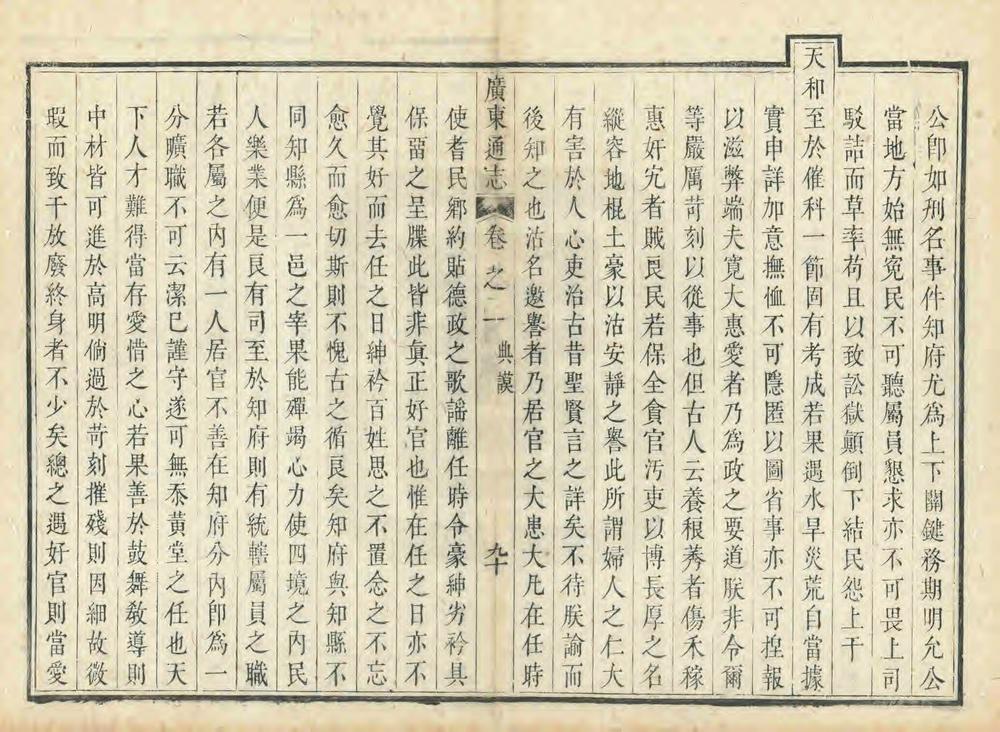 公卽如刑名事件知府尤爲上下關鍵務期明允公
當地方始無寃民不可聽屬員懇求亦不可畏上司
駁詰而草率苟且以致訟獄顚倒下結民怨上干
天和至於催科一節固有考成若果遇水旱災荒自當據
實申詳加意撫恤不可隱匿以圖省事亦不可揑報
以滋弊端夫寬大惠愛者乃爲政之要道朕非令爾
等嚴厲苛刻以從事也但古人云養稂莠者傷禾稼
惠奸宄者賊良民若保全貪官汚吏以博長厚之名
縱容地棍土豪以沽安靜之譽此所謂婦人之仁大
有害於人心吏治古昔聖賢言之詳矣不待朕諭而
後知之也沽名邀譽者乃居官之大患大凡在任時
廣東通志 卷之一 典謨 九十
使耆民鄉約貼德政之歌謠離任時令豪紳劣衿具
保留之呈牒此皆非眞正好官也惟在任之日亦不
覺其好而去任之日紳衿百姓思之不置念之不忘
愈久而愈切斯則不愧古之循良矣知府與知縣不
同知縣爲一邑之宰果能殫竭心力使四境之內民
人樂業便是良有司至於知府則有統轄屬員之職
若各屬之內有一人居官不善在知府分內卽爲一
分曠職不可云潔己謹守遂可無忝黃堂之任也天
下人才難得當存愛惜之心若果善於鼓舞敎導則
中材皆可進於高明倘過於苛刻摧殘則因細故微
瑕而致干放廢終身者不少矣總之遇好官則當愛